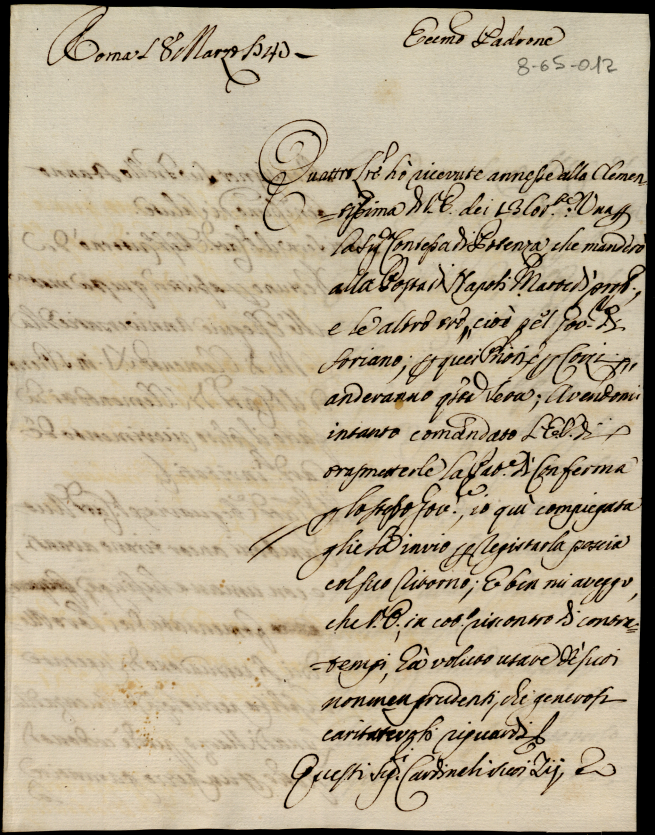 Roma L 8 Marzo 1740
Eccmo Padrone
8-65-012
Quattro Lre hò ricevute annesse alla Clemen-
-tissima di V.E. dei 13 Cor.te: Una
la Sig.a Contessa di Potenza che manderò
alla Posta di Napoli Martedì pros.o,
e le altre tre, cioè pel Gov.re di
Soriano; quei Priori
anderanno Sera; Avendomi
intanto comandato L'E.V. di
trasmetterle la Pat.e di Conferma
p lo stesso Gov.re, io quì compiegata
gliela invio p Registrarla poscia
col suo ritorno; E ben mi aveggo,
che V.E. in cot.o riscontro di contra-
-tempi, hà voluto usare de suoi
non men prudenti, che generosi
caritatevoli riguardi
Questi Sig.i Cardinali suoi Zij,